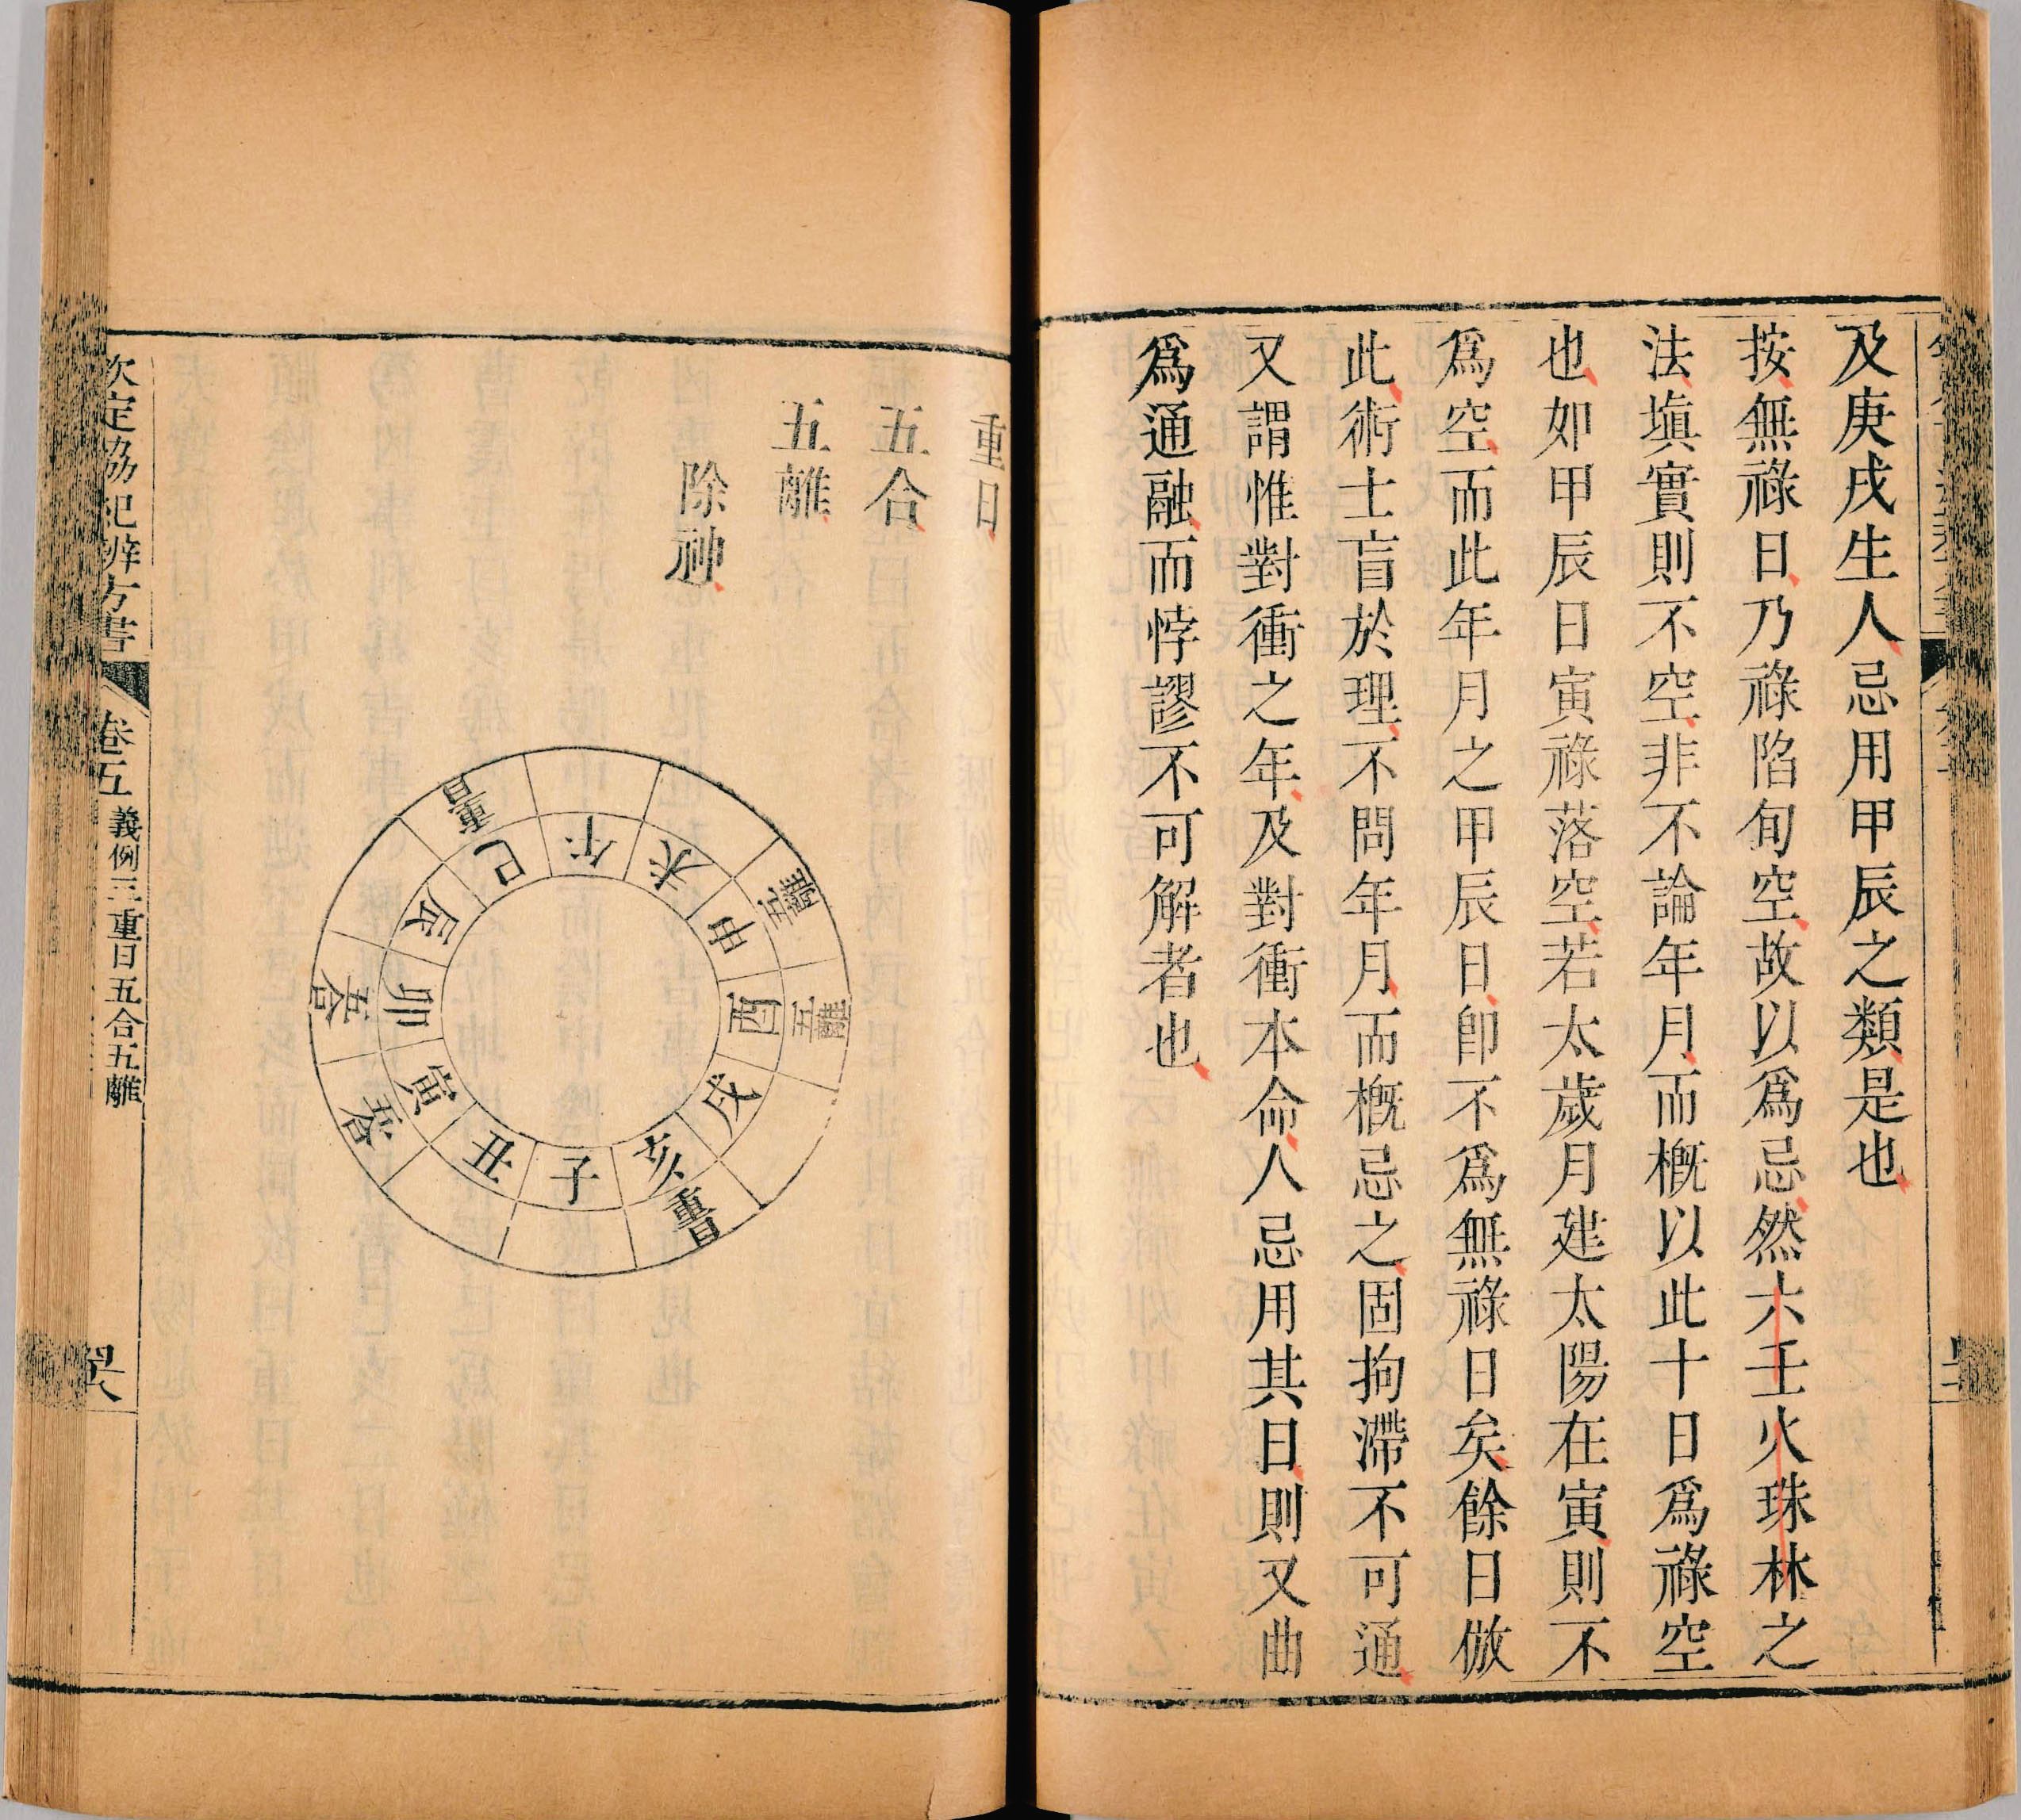 及庚戌生人忌用甲辰之類是也
按無祿日乃祿陷旬空故以爲忌然六壬火珠林之
法塡實則不空非不論年月而槪以此十日爲祿空
也如甲辰日寅祿落空若太歲月建太陽在寅則不
爲空而此年月之甲辰日卽不爲無祿日矣餘日倣
此術士盲於理不問年月而槪忌之固拘滯不可通
又謂惟對衝之年及對衝本命人忌用其日則又曲
爲通融而悖謬不可解者也
重日
五合
五離
除神
子
丑
寅 五合
卯 五合
辰
巳 重日
午
未
申 五離
酉 五離
戌
亥 重日
欽定協紀辨方書
卷五 義例三 重日五合五離